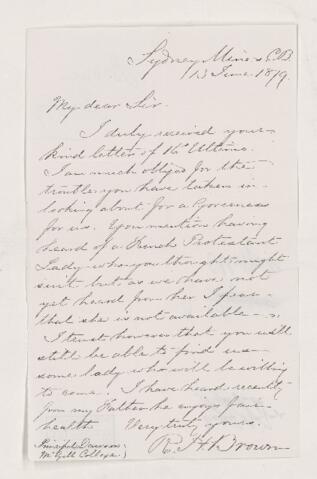 Sydney Mines C.B.
13 June 1879.
My dear Sir.
I duly received your
kind letter of 16th Ultimo.
I am much obliged for the
trouble you have taken in
looking about for a Governess
for us. You mention having
heard of a French Protestant
Lady who you thought might
suit but as we have not
yet heard from her I fear
that she is not available
I trust however that you will
still be able to find us
some lady who will be willing
to come. I have heard recently
from my Father he enjoys good
health
Very truly yours.
R. H. Brown
Principal Dawson
McGill College